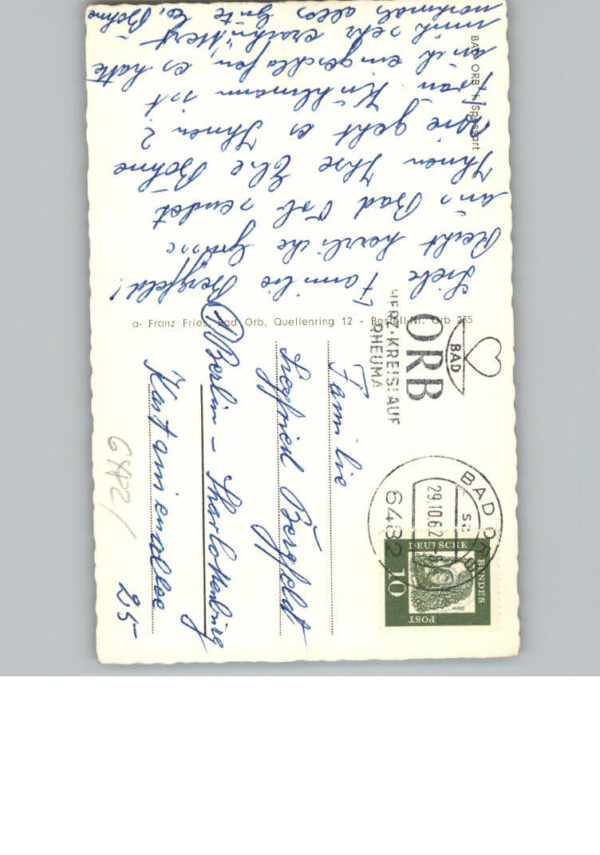 BAD ORB / Spessart
Liebe Familie Bergfeld!
Recht herzliche Grüsse
aus Bad Orb sendet
Ihnen Ihre Else Böhme
Wie geht es Ihnen?
Frau Kuhlmann ist
ja eingeschlafen es hatte
mich sehr erschüttert
nochmals alles Gute E. Böhme
a- Franz Fries, Bad Orb, Quellenring 12 - Bestell-Nr. Orb 235
BAD
ORB
HERZ·KREISLAUF
RHEUMA
BAD ORB
29.10.62
6482
DEUTSCHE
BUNDES
POST
10
Familie
Siegfried Bergfeld
1 Berlin - Charlottenburg
Kastanienallee
25
6482/